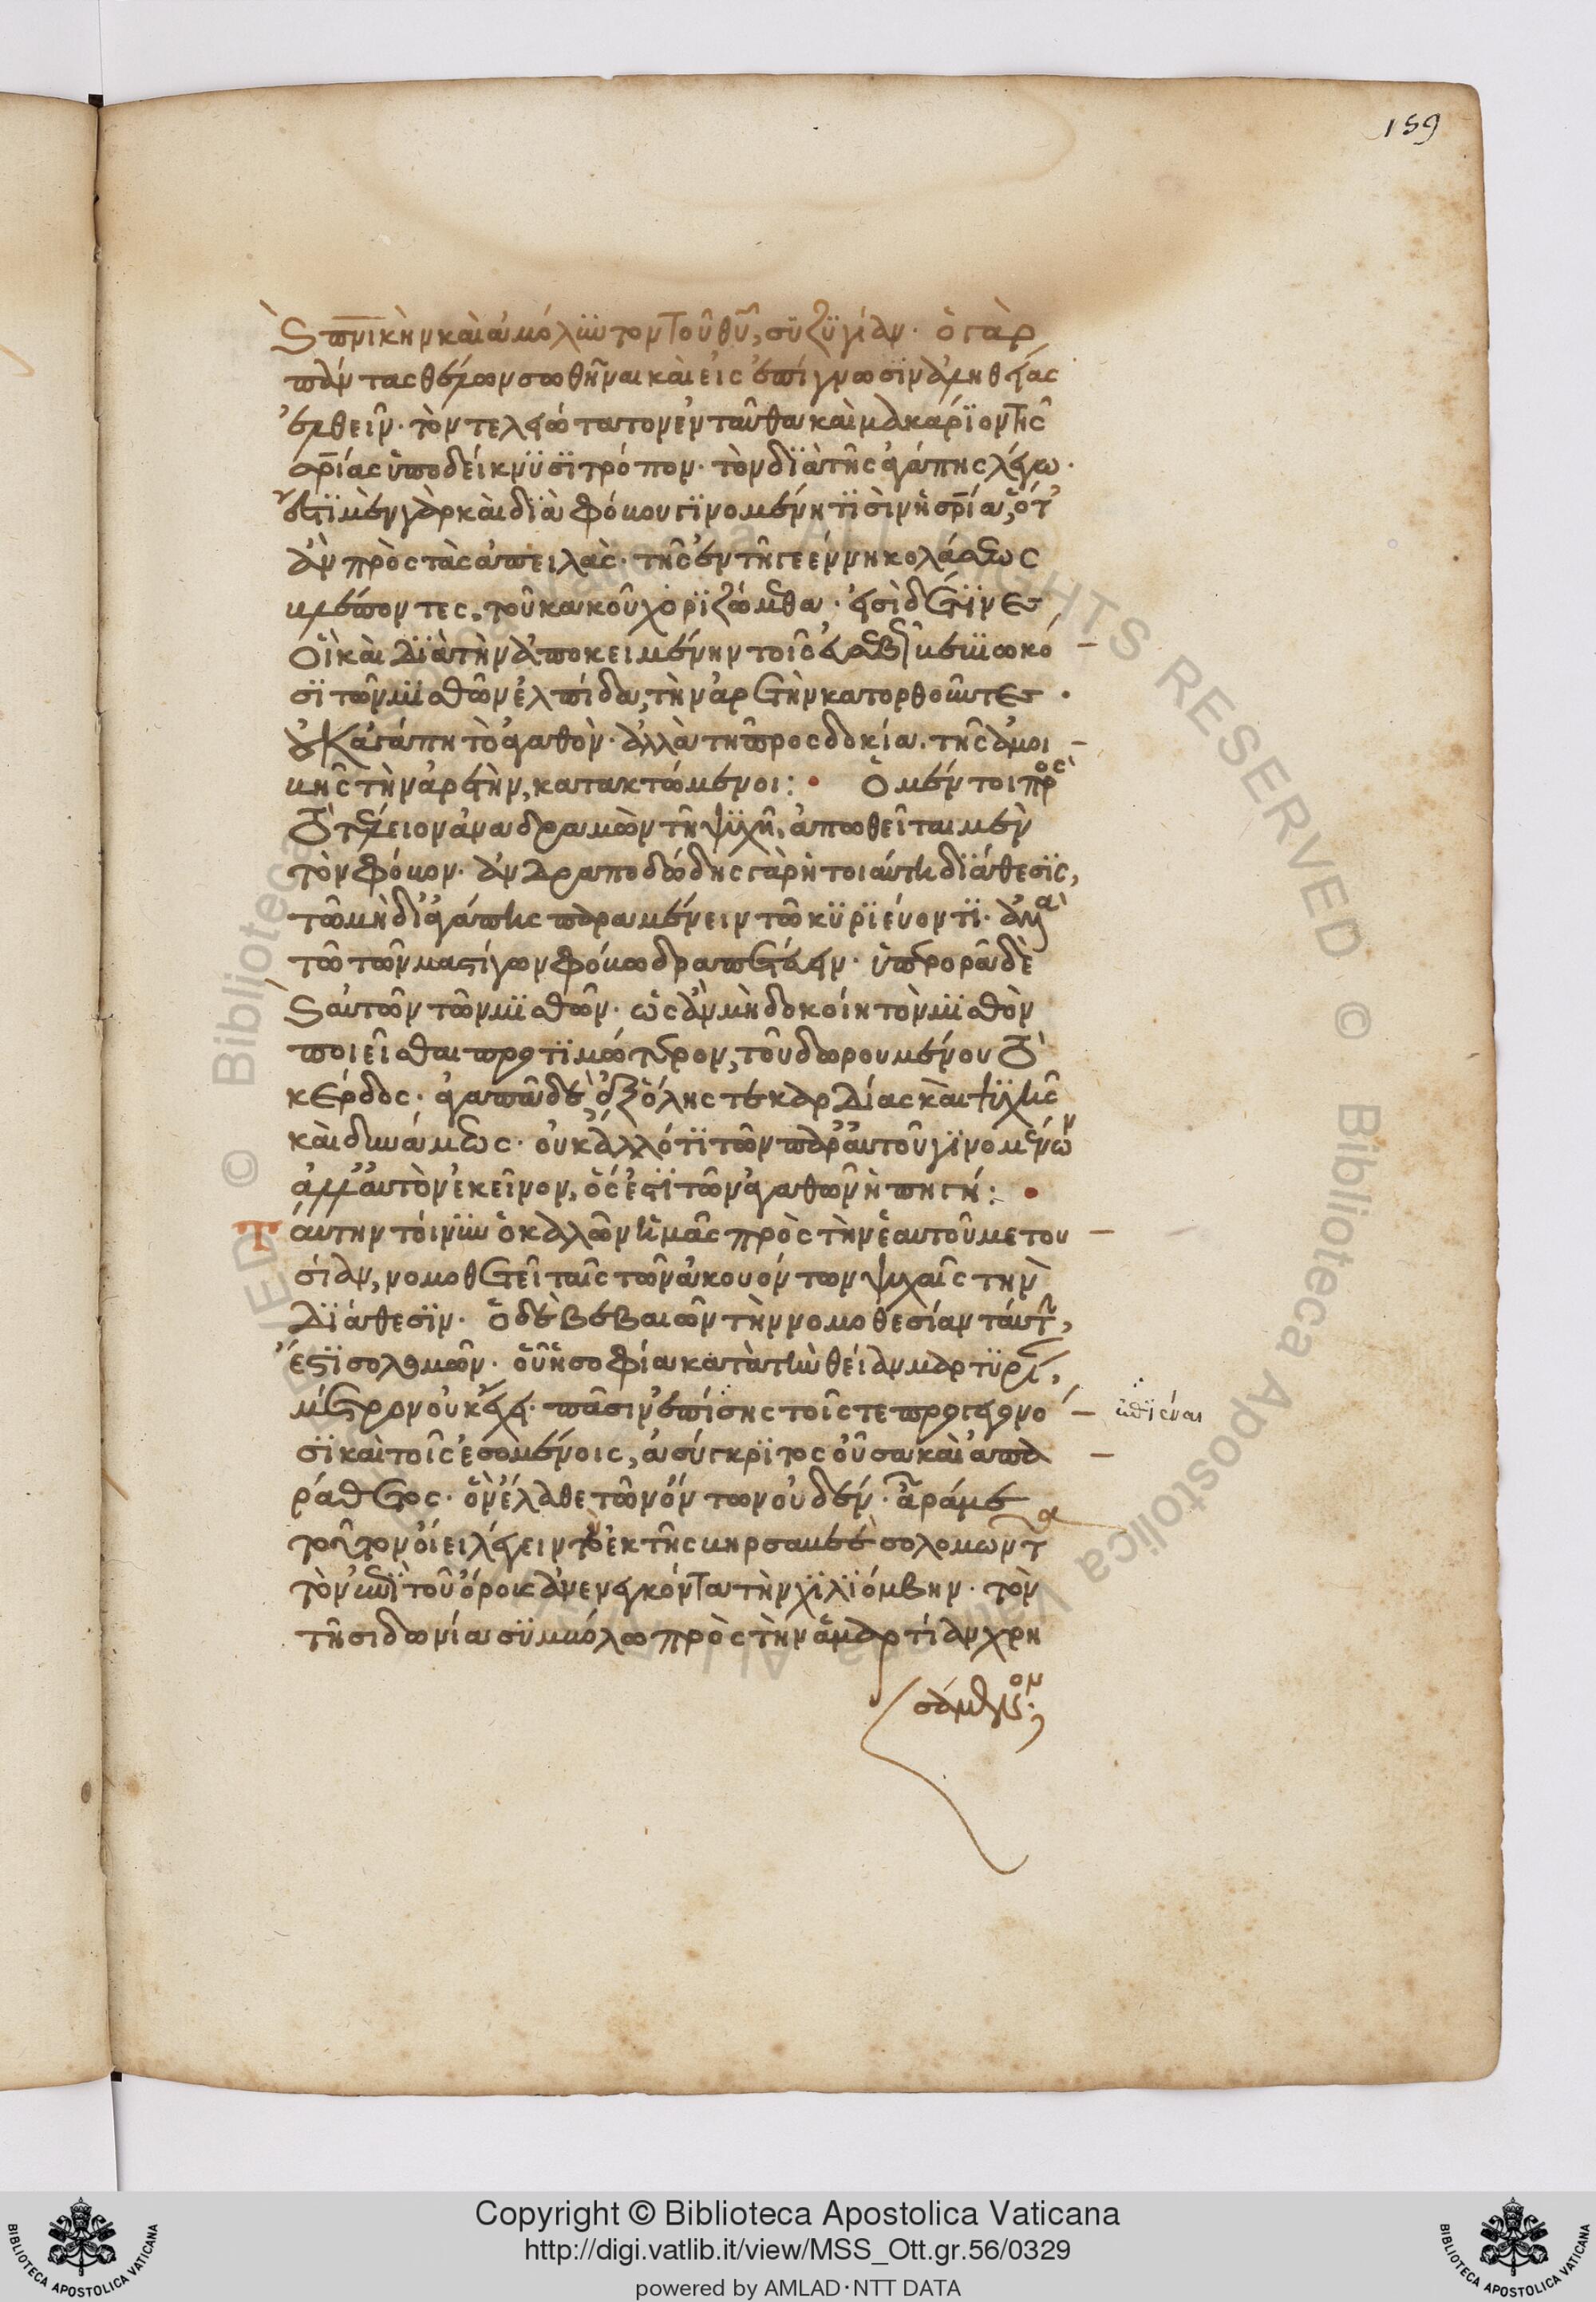 159
καὶ πνικὴν καὶ ἀμόλυντον τοῦ θυ, συζυγίαν. ὁ γὰρ
πάντας θέλων σωθῆναι καὶ εἰς ἐπίγνωσϊν ἀληθείας
ἐλθεῖν. τὸν τελειώτατον ἐνταῦθα καὶ μακάρϊον τῆς
σρίας ὑποδείκνϋσϊ τρόπον. τὸν δϊὰ τῆς ἀγάπης λέγω.
ἔστϊ μὲν γὰρ καὶ δϊὰ φόβου γϊνομένη τϊσὶν ἡ σρία, ὅτ
ἂν πρὸς τὰς ἀπειλὰς. τῆς ἐν τῆ γεέννη κολάσεως
βλέποντες, τοῦ κακοῦ χορϊζώμεθα. εἰσὶ δέ τϊνες
οἳ καὶ δϊὰ τὴν ἀποκειμένην τοῖς εὐσεβῶς βεβϊωκό
σϊ τῶν μϊσθῶν ἐλπίδα, τὴν ἀρετὴν κατορθοῦντες.
οὐκ ἀγάπη τὸ ἀγαθὸν. ἀλλὰ τῆ προσδοκία. τῆς ἀμοι
βῆς τὴν ἀρετὴν, κατακτώμενοι: Ὁ μέντοι πρὸς
τὸ τέλειον ἀναδραμὼν τῆ ψϋχῆ, ἀπωθεῖται μὲν
τὸν φόβον. ἀνδραποδώδης γὰρ ἡ τοιαύτη δϊάθεσϊς,
τῶ μὴ δι' ἀγάπης παραμένειν τῶ κϋρϊεύοντϊ. ἀλλὰ
τῶ τῶν μαστίγων φόβω δραπετεύειν. ὑπερορᾶ δὲ
καὶ αὐτῶν τῶν μϊσθῶν. ὡς ἂν μὴ δοκοίη τὸν μϊσθὸν
ποιεῖσθαι προτϊμώτερον, τοῦ δωρουμένου τὸ
κέρδος. ἀγαπᾶ δὲ ἐξ ὅλης τε καρδίας καὶ ψϋχῆς
καὶ δυνάμεως. οὐκ ἄλλό τϊ τῶν παρ' αὐτοῦ γϊνομένων
ἀλλ' αὐτὸν ἐκεῖνον, ὅς ἐστϊ τῶν ἀγαθῶν ἡ πηγή:
Ταύτην τοίνϋν ὁ καλῶν ἡμᾶς πρὸς τὴν ἑαυτοῦ μετου
σίαν, νομοθετεῖ ταῖς τῶν ἀκουόντων ψυχαῖς τὴν
δϊάθεσϊν. ὁ δὲ βεβαιῶν τὴν νομοθεσίαν ταύτην,
ἐστϊ σολομῶν. οὗ ἡ σοφία κατὰ τὴν θείαν μαρτϋρίαν,
μέτρον οὐκ ἔχει. πᾶσιν ἐπίσης τοῖς τε προγεγονό
σϊ καὶ τοῖς ἐσομένοις, ἀσύγκρϊτος οὖσα καὶ ἀπα
ράθετος. ὃν ἔλαθε τῶν ὄντων οὐδέν. ἆρά με
τοῦτον οἴει λέγειν τὸν ἐκ τῆς βηρσαβεὲ σολομῶντα
τὸν ἐπὶ τοῦ ὄρους ἀνενεγκόντα τὴν χϊλϊόμβην. τὸν
τῆ σιδωνία σϋμβόλω πρὸς τὴν ἁμαρτίαν χρη
σάμενον;